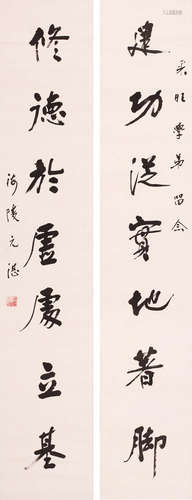 旺學弟留念
建功從實地著脚
修德於虛處立基
海陵元湛